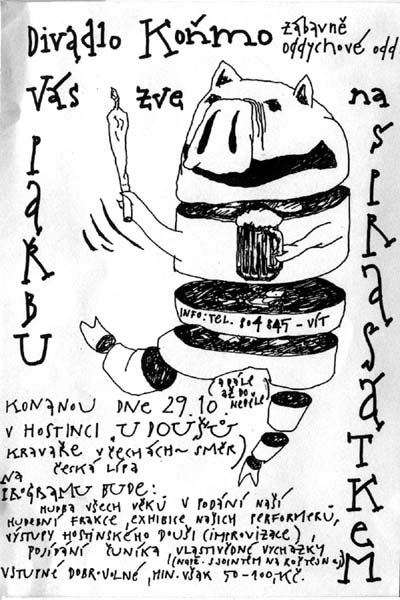 Divadlo Koňmo zábavně
oddychové odd
Vás zve na
PAŘBU
S PRASÁTKEM
INFO: TEL. 804 845 - VÍT
(A DÁLE
AŽ DO
NEDĚLE)
KONANOU DNE 29.10.
V HOSTINCI U DOUŠŮ
KRAVAŘE V ČECHÁCH ~ SMĚR
ČESKÁ LÍPA
NA
PROGRAMU BUDE:
HUDBA VŠECH VĚKŮ V PODÁNÍ NAŠÍ
HUDEBNÍ FRAKCE, EXHIBICE NAŠICH PERFORMERŮ,
VÝSTUPY HOSTINSKÉHO DOUŠI (IMPROVIZACE),
POJÍDÁNÍ ČUNÍKA, VLASTIVĚDNÉ VYCHÁZKY
(NAPŘ. S JOINTEM NA
VSTUPNÉ DOBROVOLNÉ, MIN. VŠAK 50-100,-KČ.